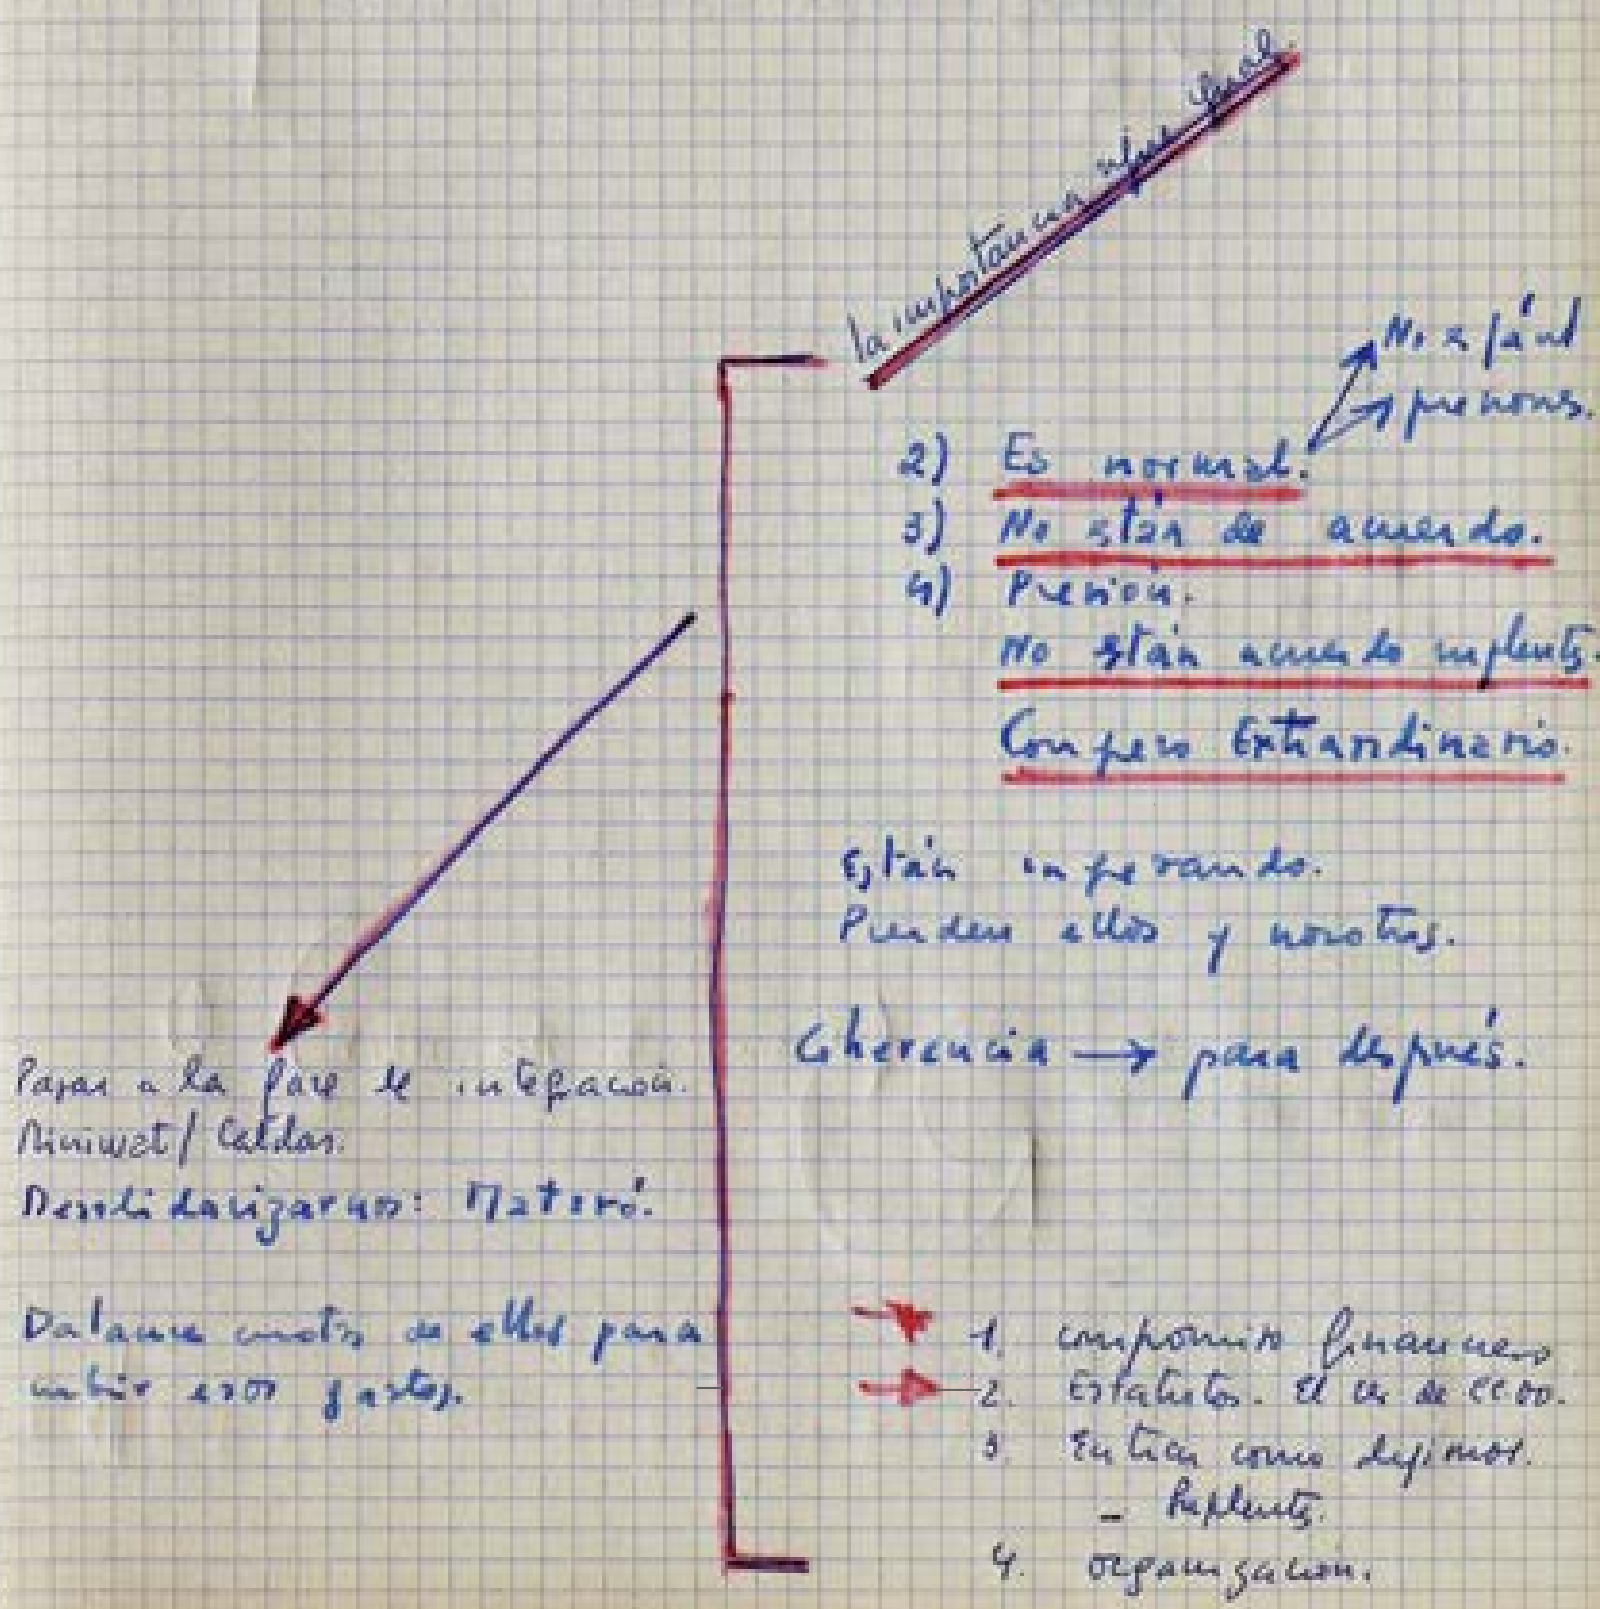 la importancia sigue igual.
No es fácil
presiones.
2) Es normal.
3) No están de acuerdo.
4) Presión.
No están acuerdo suplents.
Congreso Extraordinario.
Están esperando.
Pierden ellos y nosotros.
Coherencia → para después.
Pasar a la fase de integración.
Miniwat / Caldas.
Desolidarizarnos: Mataró.
cuotas de ellos para
cubrir esos gastos.
1. compromiso financiero
2. Estatutos. El us de CC.OO.
3. Entrar como dijimos.
- Suplents.
4. organización.